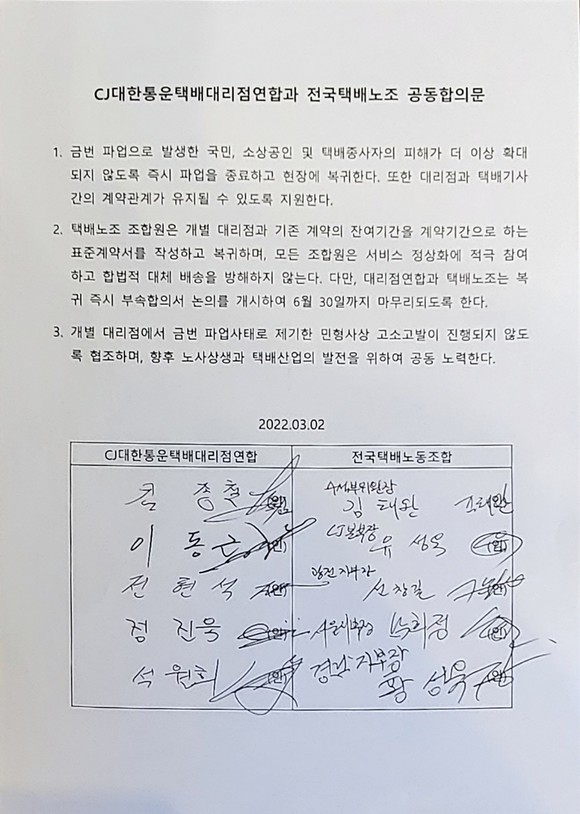 CJ대한통운택배대리점연합과 전국택배노조 공동합의문
1. 금번 파업으로 발생한 국민, 소상공인 및 택배종사자의 피해가 더 이상 확대
되지 않도록 즉시 파업을 종료하고 현장에 복귀한다. 또한 대리점과 택배기사
간의 계약관계가 유지될 수 있도록 지원한다.
2. 택배노조 조합원은 개별 대리점과 기존 계약의 잔여기간을 계약기간으로 하는
표준계약서를 작성하고 복귀하며, 모든 조합원은 서비스 정상화에 적극 참여
하고 합법적 대체 배송을 방해하지 않는다. 다만, 대리점연합과 택배노조는 복
귀 즉시 부속합의서 논의를 개시하여 6월 30일까지 마무리되도록 한다.
3. 개별 대리점에서 금번 파업사태로 제기한 민형사상 고소고발이 진행되지 않도
록 협조하며, 향후 노사상생과 택배산업의 발전을 위하여 공동 노력한다.
2022.03.02
CJ대한통운택배대리점연합 전국택배노동조합
종철 (인) 수석부위원장
김태완 (인)
이동근 (인) CJ본부장 유성욱 (인)
전현석 (인) 지부장
(인)
정진욱 (인) 서울지부장 (인)
석원희 (인) 지부장
황성욱 (인)